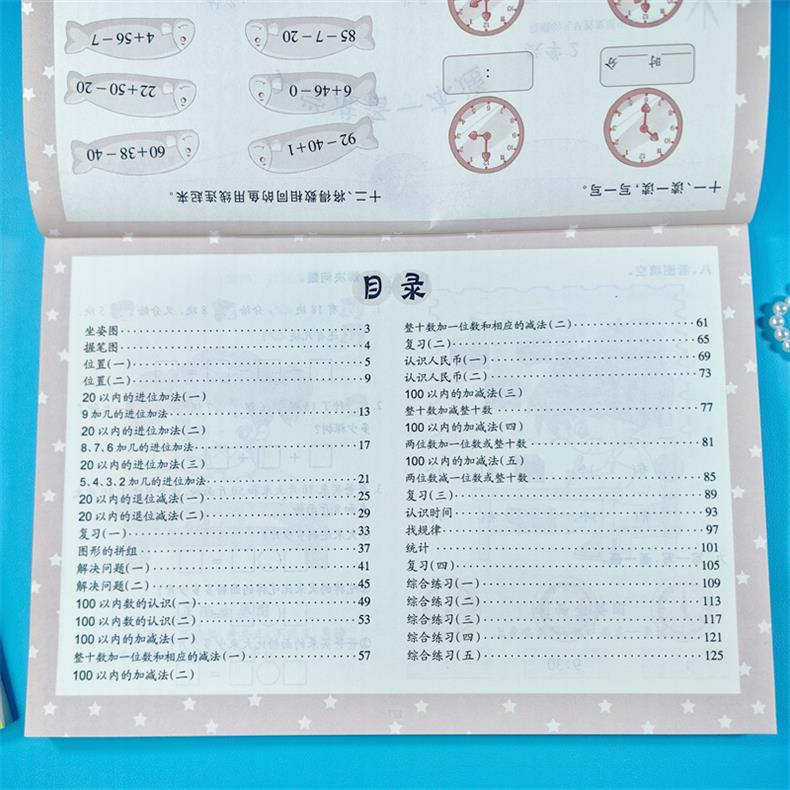 4+56-7
85-7-20
22+50-20
6+46-0
60+38-40
92-40+1
时 分
:
十一、读一读，写一写。
十二、将得数相同的鱼用线连起来。
目录
坐姿图 3
握笔图 4
位置(一) 5
位置(二) 9
20以内的进位加法(一)
9加几的进位加法 13
20以内的进位加法(二)
8.7.6加几的进位加法 17
20以内的进位加法(三)
5.4.3.2加几的进位加法 21
20以内的退位减法(一) 25
20以内的退位减法(二) 29
复习(一) 33
图形的拼组 37
解决问题(一) 41
解决问题(二) 45
100以内数的认识(一) 49
100以内数的认识(二) 53
100以内的加减法(一)
整十数加一位数和相应的减法(一) 57
100以内的加减法(二)
整十数加一位数和相应的减法(二) 61
复习(二) 65
认识人民币(一) 69
认识人民币(二) 73
100以内的加减法(三)
整十数加减整十数 77
100以内的加减法(四)
两位数加一位数或整十数 81
100以内的加减法(五)
两位数减一位数或整十数 85
复习(三) 89
认识时间 93
找规律 97
统计 101
复习(四) 105
综合练习(一) 109
综合练习(二) 113
综合练习(三) 117
综合练习(四) 121
综合练习(五) 125